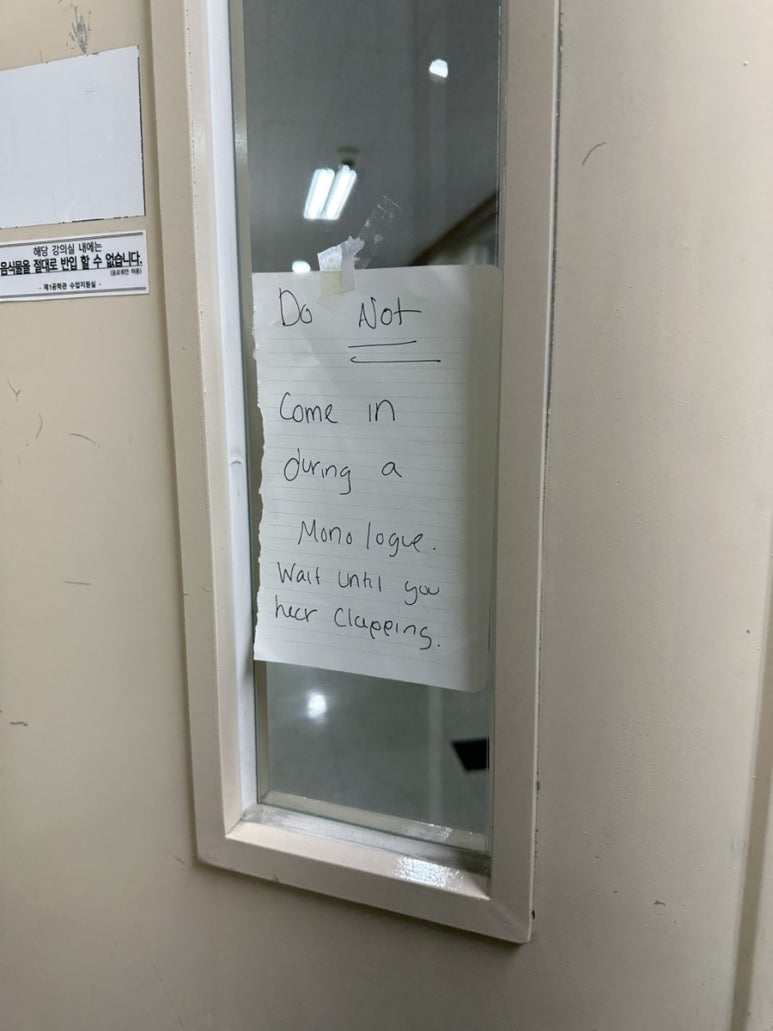 해당 강의실 내에는
음식물을 절대로 반입 할 수 없습니다.
(음료류만 허용)
- 제1공학관 수업지원실 -
Do Not
Come in
during a
Monologue.
Wait until you
hear Clapping.